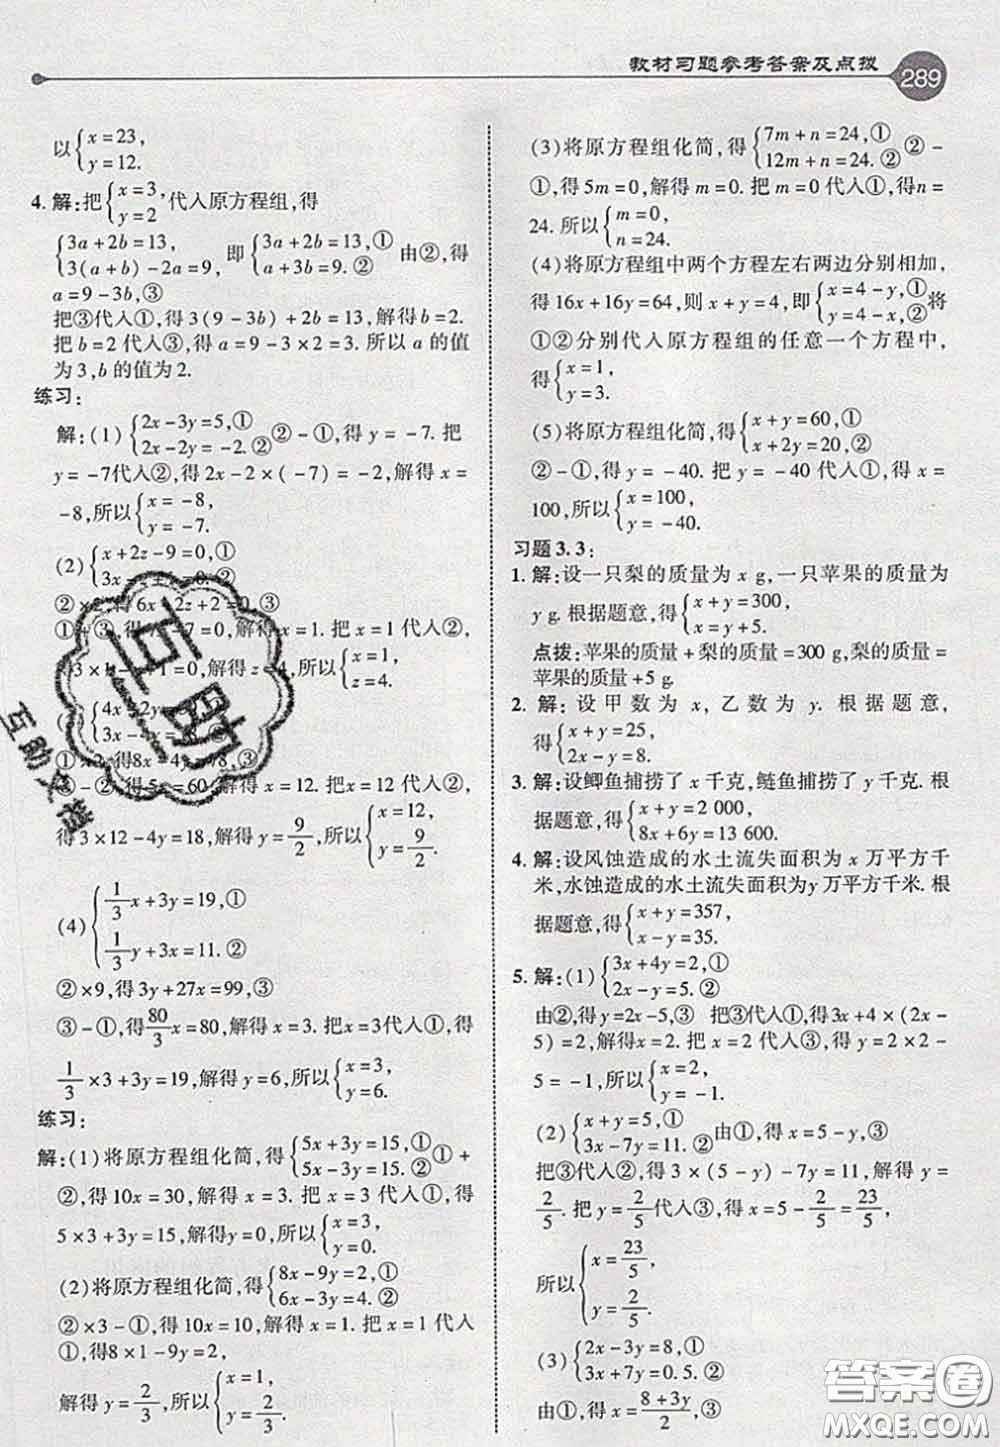 教材习题参考答案及点拨
289
以{x=23, y=12.
4. 解:把{x=3, y=2,代入原方程组,得
{3a+2b=13, 3(a+b)-2a=9, 即{3a+2b=13,① a+3b=9.② 由②,得
a=9-3b,③
把③代入①,得3(9-3b)+2b=13,解得b=2.
把b=2代入③,得a=9-3×2=3.所以a的值
为3,b的值为2.
练习:
解:(1){2x-3y=5,① 2x-2y=-2.② ②-①,得y=-7.把
y=-7代入②,得2x-2×(-7)=-2,解得x=
-8,所以{x=-8, y=-7.
(2){x+2z-9=0,① 3x-z+1=0.②
②×2,得6x-2z+2=0,③
①+③,得7x-7=0,解得x=1.把x=1代入②,
3×1-z+1=0,解得z=4,所以{x=1, z=4.
{4x 3x-4
①×2,得8x-4y=78,③
③-②,得5x=60,解得x=12.把x=12代入②,
得3×12-4y=18,解得y=9/2,所以{x=12, y=9/2.
(4){1/3x+3y=19,① 1/3y+3x=11.②
②×9,得3y+27x=99,③
③-①,得80/3x=80,解得x=3.把x=3代入①,得
1/3×3+3y=19,解得y=6,所以{x=3, y=6.
练习:
解:(1)将原方程组化简,得{5x+3y=15,① 5x-3y=15.② ①+
②,得10x=30,解得x=3.把x=3代入①,得
5×3+3y=15,解得y=0,所以{x=3, y=0.
(2)将原方程组化简,得{8x-9y=2,① 6x-3y=4.②
②×3-①,得10x=10,解得x=1.把x=1代入
①,得8×1-9y=2,
解得y=2/3,所以{x=1, y=2/3.
(3)将原方程组化简,得{7m+n=24,① 12m+n=24.② ②-
①,得5m=0,解得m=0.把m=0代入①,得n=
24.所以{m=0, n=24.
(4)将原方程组中两个方程左右两边分别相加,
得16x+16y=64,则x+y=4,即{x=4-y,① y=4-x,② 将
①②分别代入原方程组的任意一个方程中,
得{x=1, y=3.
(5)将原方程组化简,得{x+y=60,① x+2y=20,②
②-①,得y=-40.把y=-40代入①,得x=
100,所以{x=100, y=-40.
习题3.3:
1. 解:设一只梨的质量为x g,一只苹果的质量为
y g.根据题意,得{x+y=300, x=y+5.
点拨:苹果的质量+梨的质量=300 g,梨的质量=
苹果的质量+5 g.
2. 解:设甲数为x,乙数为y.根据题意,
得{x+y=25, 2x-y=8.
3. 解:设鲫鱼捕捞了x千克,鲢鱼捕捞了y千克.根
据题意,得{x+y=2 000, 8x+6y=13 600.
4. 解:设风蚀造成的水土流失面积为x万平方千
米,水蚀造成的水土流失面积为y万平方千米.根
据题意,得{x+y=357, x-y=35.
5. 解:(1){3x+4y=2,① 2x-y=5.②
由②,得y=2x-5,③ 把③代入①,得3x+4×(2x-
5)=2,解得x=2.把x=2代入③,得y=2×2-
5=-1,所以{x=2, y=-1.
(2){x+y=5,① 3x-7y=11.② 由①,得x=5-y,③
把③代入②,得3×(5-y)-7y=11,解得y=
2/5.把y=2/5代入③,得x=5-2/5=23/5.
所以{x=23/5, y=2/5.
(3){2x-3y=8,① 3x+7y=0.②
由①,得x=(8+3y)/2,③
互助
互助文档
答案圈
MXQE.COM